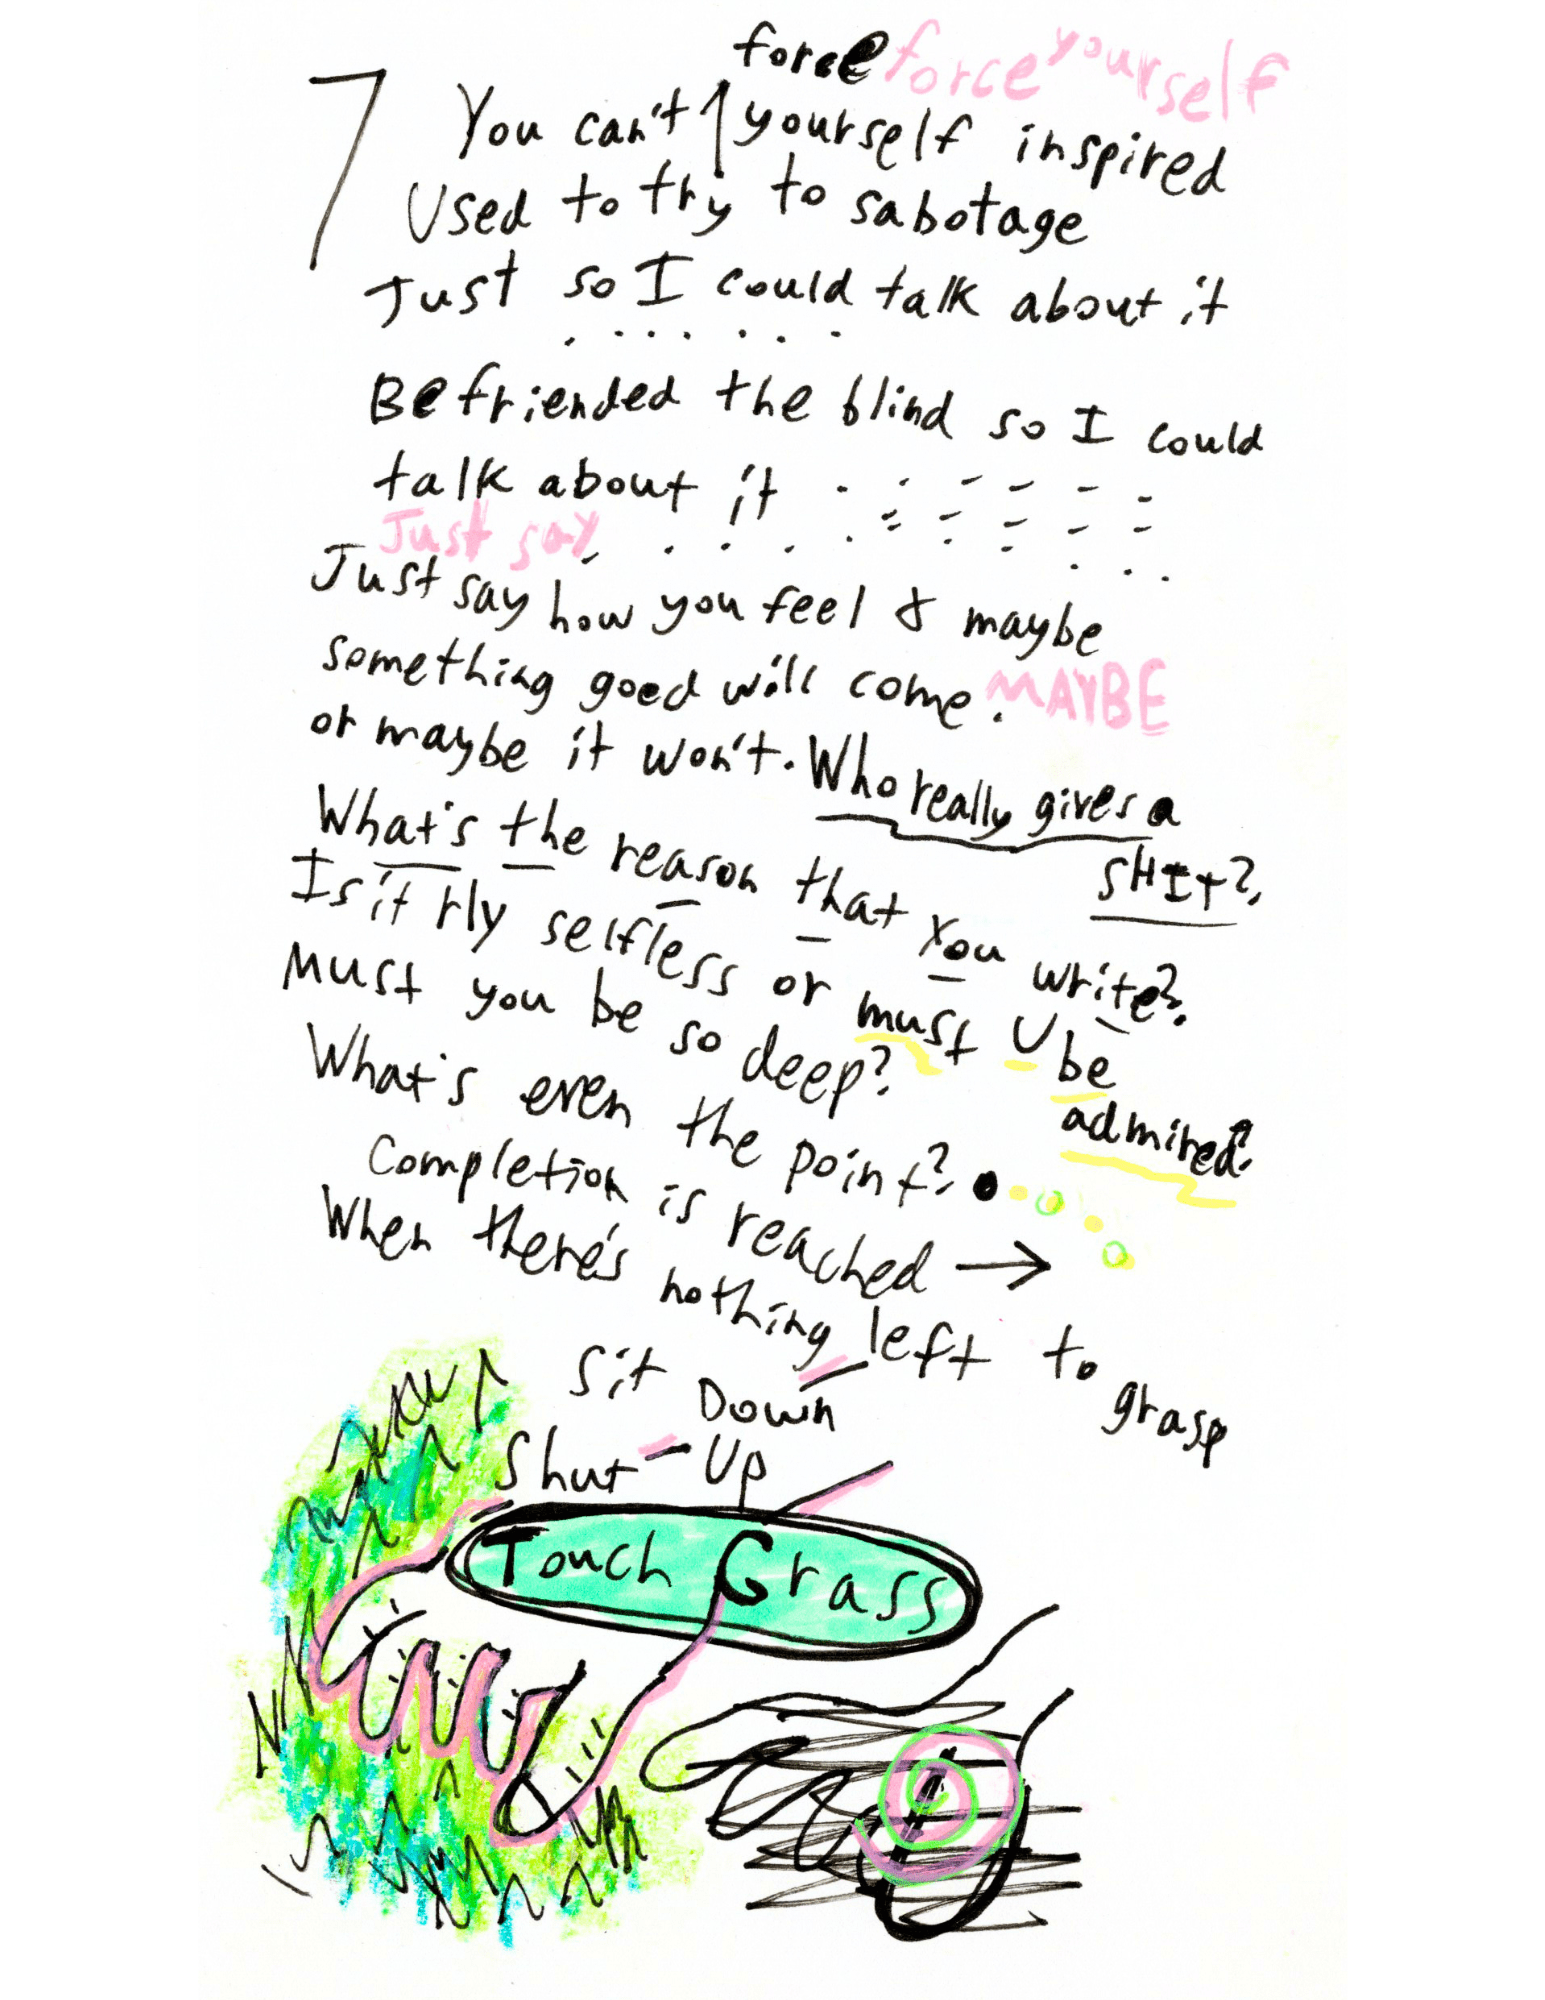 force force yourself
7
You can't yourself inspired
Used to try to sabotage
Just so I could talk about it
Befriended the blind so I could
talk about it
Just say
Just say how you feel & maybe
something good will come. MAYBE
or maybe it won't. Who really gives a
SHIT?
What's the reason that you write?
Is it rly selfless or must U be
admired?
Must you be so deep?
What's even the point?
Completion is reached →
When there's nothing left to
grasp
Sit Down
Shut - Up
Touch Grass